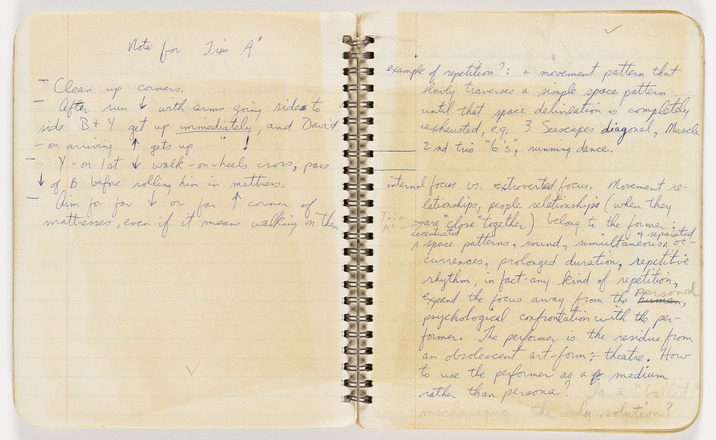 Notes for Trio A'
— Clean up corners.
— After run ↓ with arms going side to
side B + Y get up immediately, and David
- on arriving ↑ gets up " !
— Y - on 1st ↓ walk-on-heels cross, pass
↓ of B. before rolling him in mattress.
— Aim for far ↓ or far ↑ corner of
mattresses, even if it means walking on them
example of repetition?: a movement pattern that
slowly traverses a simple space pattern
until that space delineation is completely
exhausted, e.g. 3 Seascapes diagonal, Muscle
2nd trio "6's", running dance.
internal focus vs. extroverted focus. Movement re-
lationships, people relationships (when they
Trio
A' are "close" together) belong to the former;
accentuated & separated
space patterns, sound, simultaneous oc-
currences, prolonged duration, repetitive
rhythm, in fact any kind of repetition,
personal
expand the focus away from the human,
psychological confrontation with the per-
former. The performer is the residue from
an obsolescent art-form: theatre. How
to use the performer as a medium
rather than persona? Is a "ballet
mechanique" the only solution?